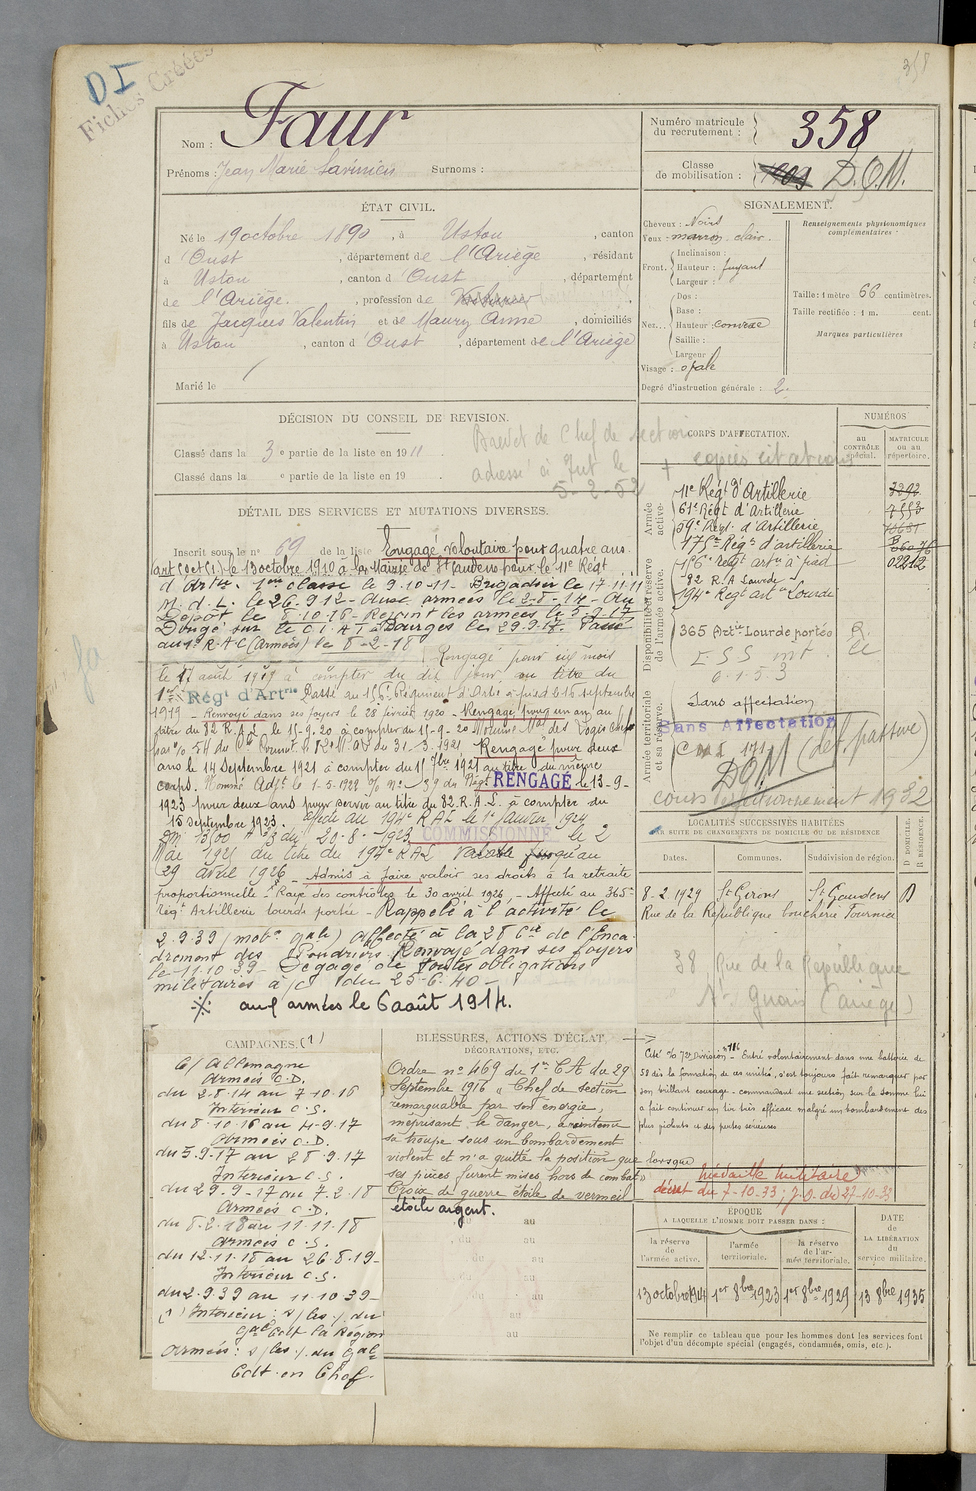 358
DI
Fiches Créées
Nom : Faur
Prénoms : Jean Marie Surnoms :
Numéro matricule du recrutement : 358
Classe de mobilisation : 1909 D.O.M.
ÉTAT CIVIL.
Né le 19 octobre 1890, à Ustou, canton
d'Oust, département de l'Ariège, résidant
à Ustou, canton d'Oust, département
de l'Ariège, profession de
fils de Jacques Valentin et de Maury Anne, domiciliés
à Ustou, canton d'Oust, département de l'Ariège
Marié le
SIGNALEMENT.
Cheveux : Noirs
Yeux : marron clair.
Front. Inclinaison :
Hauteur : fuyant
Largeur :
Nez. Dos :
Base :
Hauteur : convexe
Saillie :
Largeur
Visage : ovale
Degré d'instruction générale : 2.
Renseignements physionomiques complémentaires :
Taille : 1 mètre 66 centimètres.
Taille rectifiée : 1 m. cent.
Marques particulières
DÉCISION DU CONSEIL DE REVISION.
Classé dans la 3e partie de la liste en 1911
Classé dans la e partie de la liste en 19
Brevet de Chef de section
+ copies citations
adressé à Int le
5-2-52
DÉTAIL DES SERVICES ET MUTATIONS DIVERSES.
Inscrit sous le n° 69 de la liste Engagé voloutaire pour quatre ans.
le 13 octobre 1910 à la Mairie de St Gaudens pour le 11e Régt
d'Artie. 1ère classe le 9.10-11- Brigadier le 17.11.11
M.d.L. le 26.9.12- Aux armées le 2-8-14- Au
Dépôt le 8-10-16- Rejoint les armées le 5-9-17
Bourges le 29.9.17. Passé
au 1er R.A.C (Armées) le 8-2-18
Rengagé pour six mois
le 17 août 1919 à compter du dit jour, au titre du
1er Régt d'Artrie Passé au 156e Régiment d'Artie à pied le 16 septembre
1919 - Renvoyé dans ses foyers le 28 février 1920 - Rengagé pour un an au
titre du 82 R.A.L. le 15-9.20 à compter du 15-9-20 Nommé Mal des Logis Chef
du 31-3-1921 Rengagé pour deux
ans le 14 Septembre 1921 à compter du 15 7bre 1921 au titre du même
corps. Nommé Adjt le 1-5-1922 RENGAGÉ le 13-9-
1923 pour deux ans pour servir au titre du 82.R.A.L. à compter du
15 septembre 1923. Affecté au 194e RAL le 1er janvier 1924
COMMISSIONNÉ le 2
Mai 1925 au titre du 194e RAL valable jusqu'au
29 avril 1926 - Admis à faire valoir ses droits à la retraite
proportionnelle - Rayé des contrôles le 30 avril 1926 - Affecté au 365e
Régt Artillerie lourde portée - Rappelé à l'activité le
2.9.39 (mobon gale) Affecté à la 28 Cie de l'Enca-
drement des Poudriers. Renvoyé dans ses foyers
le 11.10 39- Dégagé de toutes obligations
militaires à/c du 25-6.40-
※ aux armées le 6 août 1914.
CORPS D'AFFECTATION.
NUMÉROS
au CONTRÔLE spécial.
MATRICULE ou au répertoire.
Armée active.
11e Régt d'Artillerie
61e Régt d'Artillerie
59e Régt. d'Artillerie
175e Régt d'artillerie
Disponibilité et réserve de l'armée active.
156e régt artie à pied
82 R.A Lourde
194e Régt artie Lourde
365 Artie Lourde portée
Armée territoriale et sa réserve.
Sans affectation
Sans Affectation
(def passive)
DOM
1932
LOCALITÉS SUCCESSIVES HABITÉES
PAR SUITE DE CHANGEMENTS DE DOMICILE OU DE RÉSIDENCE
Dates. Communes. Subdivision de région. D DOMICILE. R RÉSIDENCE.
8-2-1929 St Girons St Gaudens D
Rue de la République boucherie Tournié
38 Rue de la Republique
St Girons (Ariège)
CAMPAGNES. (1)
C/ Allemagne
Armées C.D.
du 2.8.14 au 7-10-16
Intérieur C.S.
du 8-10-16 au 4-9-17
Armées C.D.
du 5.9-17 au 28.9.17
Intérieur C.S.
du 29-9-17 au 7.2.18
Armées C.D.
du 8.2.18 au 11.11.18
Armées C.S.
du 12.11.18 au 26.8.19-
Intérieur C.S.
du 2.9.39 au 11.10 39-
(1) Intérieur : s/les/. du
Gal Cdt la Région
Armées : s/les/. du Gal
Cdt. en Chef.
BLESSURES, ACTIONS D'ÉCLAT,
DÉCORATIONS, ETC.
Ordre n° 469 du 1er C.A du 29
Septembre 1916 « Chef de section
remarquable par son énergie,
méprisant le danger, a maintenu
sa troupe sous un bombardement
violent et n'a quitté la position que lorsque
ses pièces furent mises hors de combat »
Croix de guerre étoile de vermeil
étoile argent.
Cité 72e Division n° 116 - Entré volontairement dans une batterie de
58 dès la formation de ces unités, s'est toujours fait remarquer par
son brillant courage - commandant une section sur la Somme lui
a fait continuer un tir très efficace malgré un bombardement des
plus violents et des pertes sérieuses
Médaille militaire
décret du 7-10-33, J.O. du 27-10-33
du au
du au
du au
du au
au
au
ÉPOQUE
A LAQUELLE L'HOMME DOIT PASSER DANS :
la réserve de l'armée active.
l'armée territoriale.
la réserve de l'armée territoriale.
DATE de LA LIBÉRATION du service militaire.
13 octobre 1914 1er 8bre 1923 1er 8bre 1929 13 8bre 1935
Ne remplir ce tableau que pour les hommes dont les services font
l'objet d'un décompte spécial (engagés, condamnés, omis, etc.).